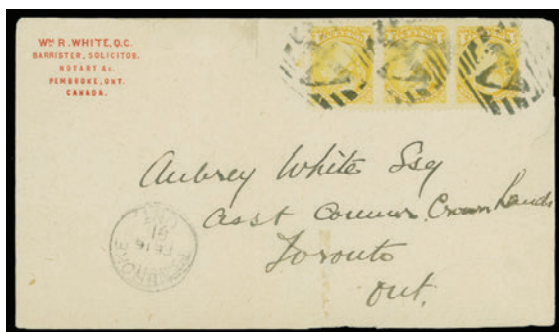 Wm R. WHITE, Q.C.
BARRISTER, SOLICITOR,
NOTARY &c.
PEMBROKE, ONT.
CANADA.
Aubrey White Esq
Asst Commr. Crown Lands
Toronto
Ont.
PEMBROKE
FE 16
91
ONT